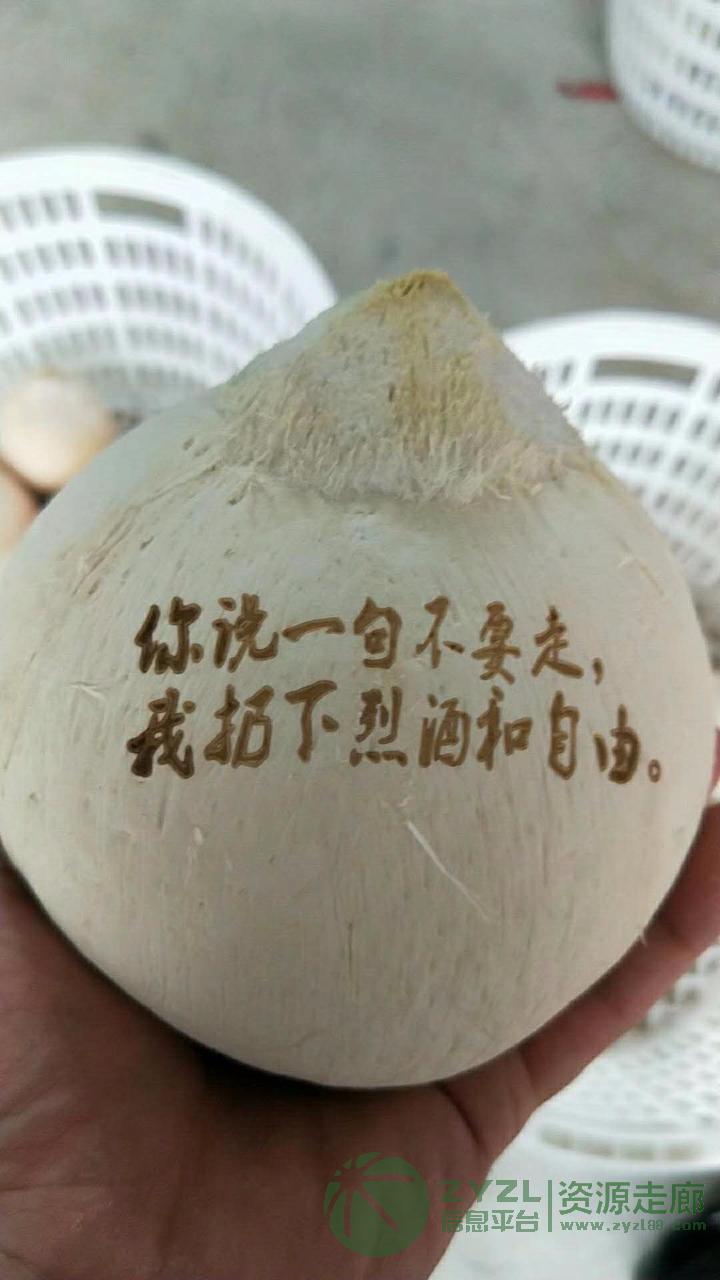 你说一句不要走，
我扔下烈酒和自由。
ZYZL
信息平台
资源走廊
www.zyzl88.com